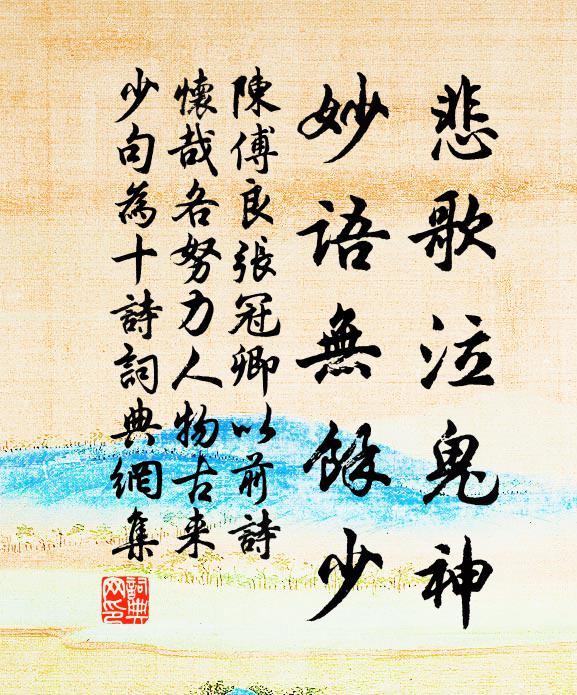 悲歌泣鬼神
妙語無餘少
陳傅良張冠卿以前詩
懷哉各努力人物古来
少句為十詩詞典網集
詞典网印